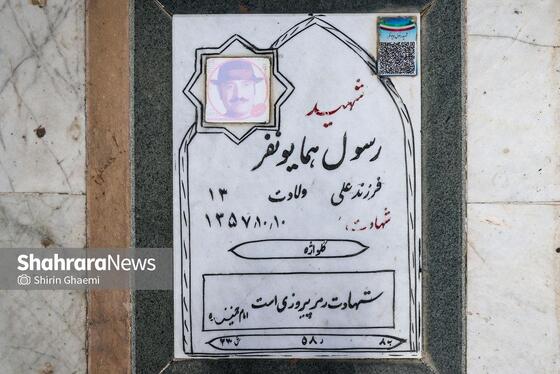 شهید
رسول همایونفر
فرزند علی ولادت ۱۳
شهادت ۱۳۵۷/۱۰/۱۰
گلوازه
شهادت رمز پیروزی است
امام خمینی ره
ShahraraNews
Shirin Ghaemi